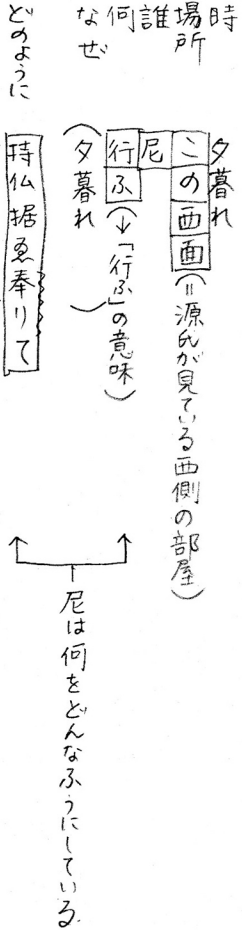 時　夕暮れ
場所　この西面（＝源氏が見ている西側の部屋）
誰　尼
何　行ふ（→「行ふ」の意味）
なぜ　（夕暮れ　　）
どのように　持仏据ゑ奉りて
尼は何をどんなふうにしている